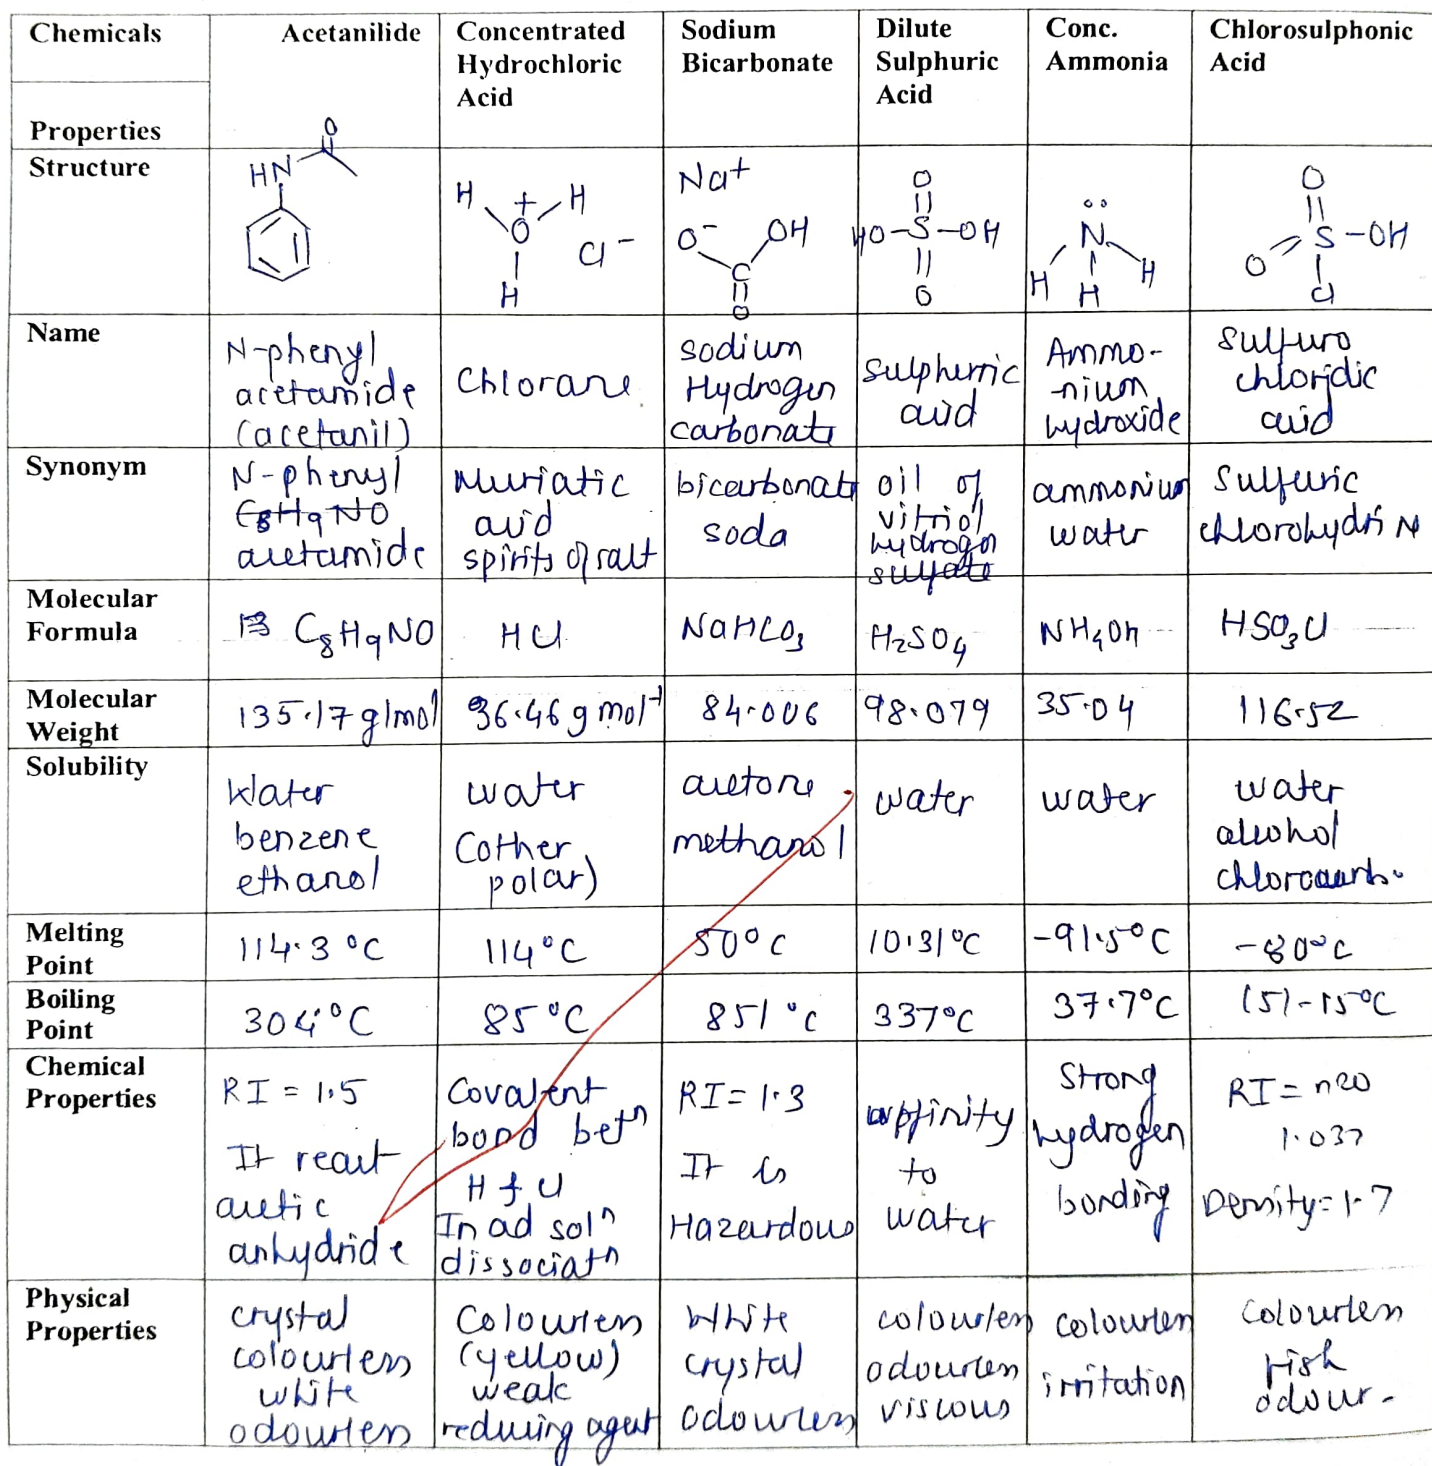 Chemicals
Properties
Acetanilide
Concentrated
Hydrochloric
Acid
Sodium
Bicarbonate
Dilute
Sulphuric
Acid
Conc.
Ammonia
Chlorosulphonic
Acid
Structure
O
HN
H + H
O
Cl⁻
H
Na⁺
O⁻ OH
C
O
O
HO-S-OH
O
N
H H H
O
S-OH
O
Cl
Name
N-phenyl
acetamide
(acetanil)
Chlorane
sodium
Hydrogen
carbonate
Sulphuric
acid
Ammo-
-nium
hydroxide
Sulfuro
chloridic
acid
Synonym
N-phenyl
C₈H₉NO
acetamide
Muriatic
acid
spirits of salt
bicarbonate
soda
oil of
vitriol
hydrogen
sulfate
ammonium
water
Sulfuric
chlorohydrin
Molecular
Formula
C₈H₉NO
HCl
NaHCO₃
H₂SO₄
NH₄OH
HSO₃Cl
Molecular
Weight
135.17 g/mol
36.46 g mol⁻¹
84.006
98.079
35.04
116.52
Solubility
Water
benzene
ethanol
water
(other
polar)
acetone
methanol
water
water
water
alcohol
Melting
Point
114.3 °C
114°C
50°C
10.31°C
-91.5°C
-80°C
Boiling
Point
304°C
85°C
851°C
337°C
37.7°C
151-15°C
Chemical
Properties
RI = 1.5
It react
acetic
anhydride
Covalent
bond betⁿ
H & Cl
In aq solⁿ
dissociatⁿ
RI = 1.3
It is
Hazardous
affinity
to
water
Strong
hydrogen
bonding
RI = n20
1.037
Density = 1.7
Physical
Properties
crystal
colourless
white
odourless
Colourless
(yellow)
weak
reducing agent
White
crystal
odourless
colourless
odourless
viscous
colourless
irritation
Colourless
odour.